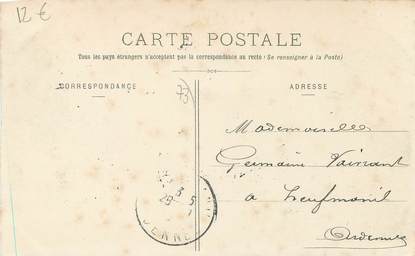 12 €
CARTE POSTALE
Tous les pays étrangers n'acceptent pas la correspondance au recto (Se renseigner à la Poste)
CORRESPONDANCE
ADRESSE
73
Mademoiselle
Germaine
a Neufmanil
Ardennes